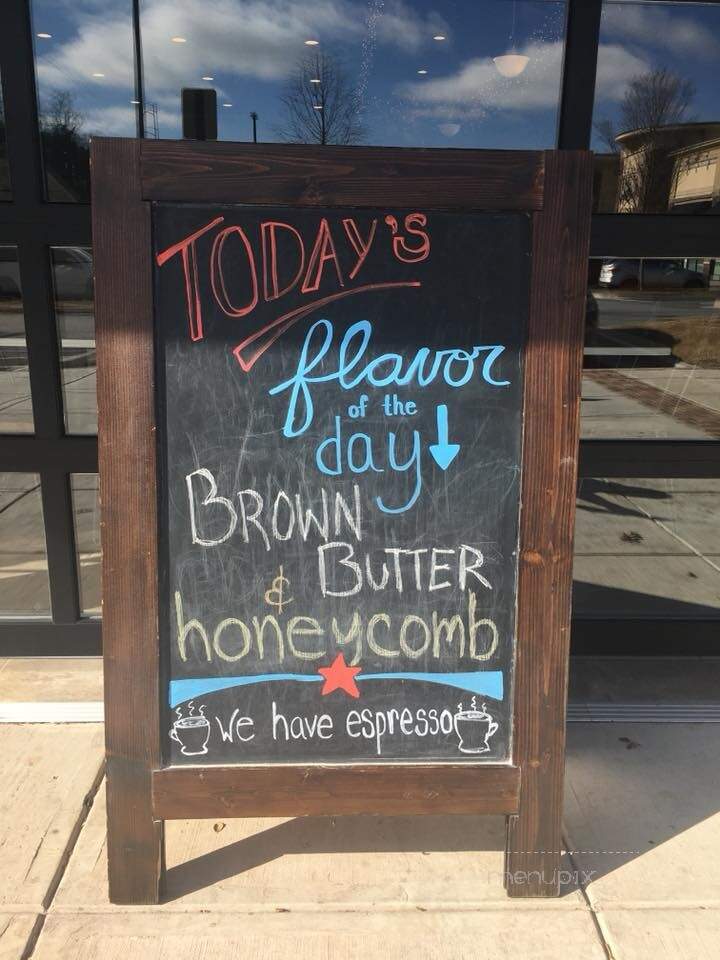 TODAY'S
flavor
of the
day
BROWN
BUTTER
&
honeycomb
We have espresso
menupix